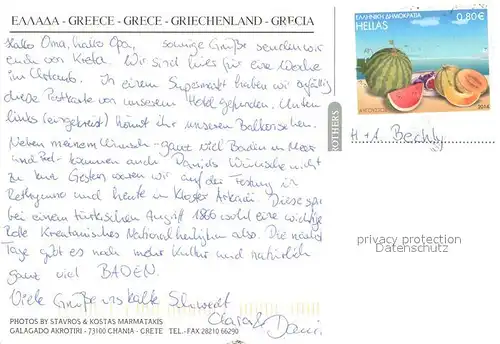 ΕΛΛΑΔΑ - GREECE - GRECE - GRIECHENLAND - GRECIA
Hallo Oma, hallo Opa, sonnige Grüße senden wir
euch von Kreta. Wir sind hier für eine Woche
im Urlaub. In einem Supermarkt haben wir zufällig
diese Postkarte von unserem Hotel gefunden. Unten
links (eingekreist) könnt ihr unseren Balkon sehen.
Neben meinem Wunsch - ganz viel Baden in Meer
und Pool - kommen auch Daniels Wünsche nicht
zu kurz. Gestern waren wir auf der Festung in
Rethymno und heute im Kloster Arkadi. Diese
bei einem türkischen Angriff 1866 wohl eine wichtige
Rolle. Kretanisches Nationalheiligtum also. Die nächsten
Tage gibt es noch mehr Kultur und natürlich
ganz viel BADEN.
Viele Grüße ins kalte Schwedt
PHOTOS BY STAVROS & KOSTAS MARMATAKIS
GALAGADO AKROTIRI - 73100 CHANIA - CRETE TEL.-FAX 28210 66290
ROTHERS
ΕΛΛΗΝΙΚΗ ΔΗΜΟΚΡΑΤΙΑ
HELLAS
0,80€
2014
H. + A.
privacy protection
DELCAMPE.NET